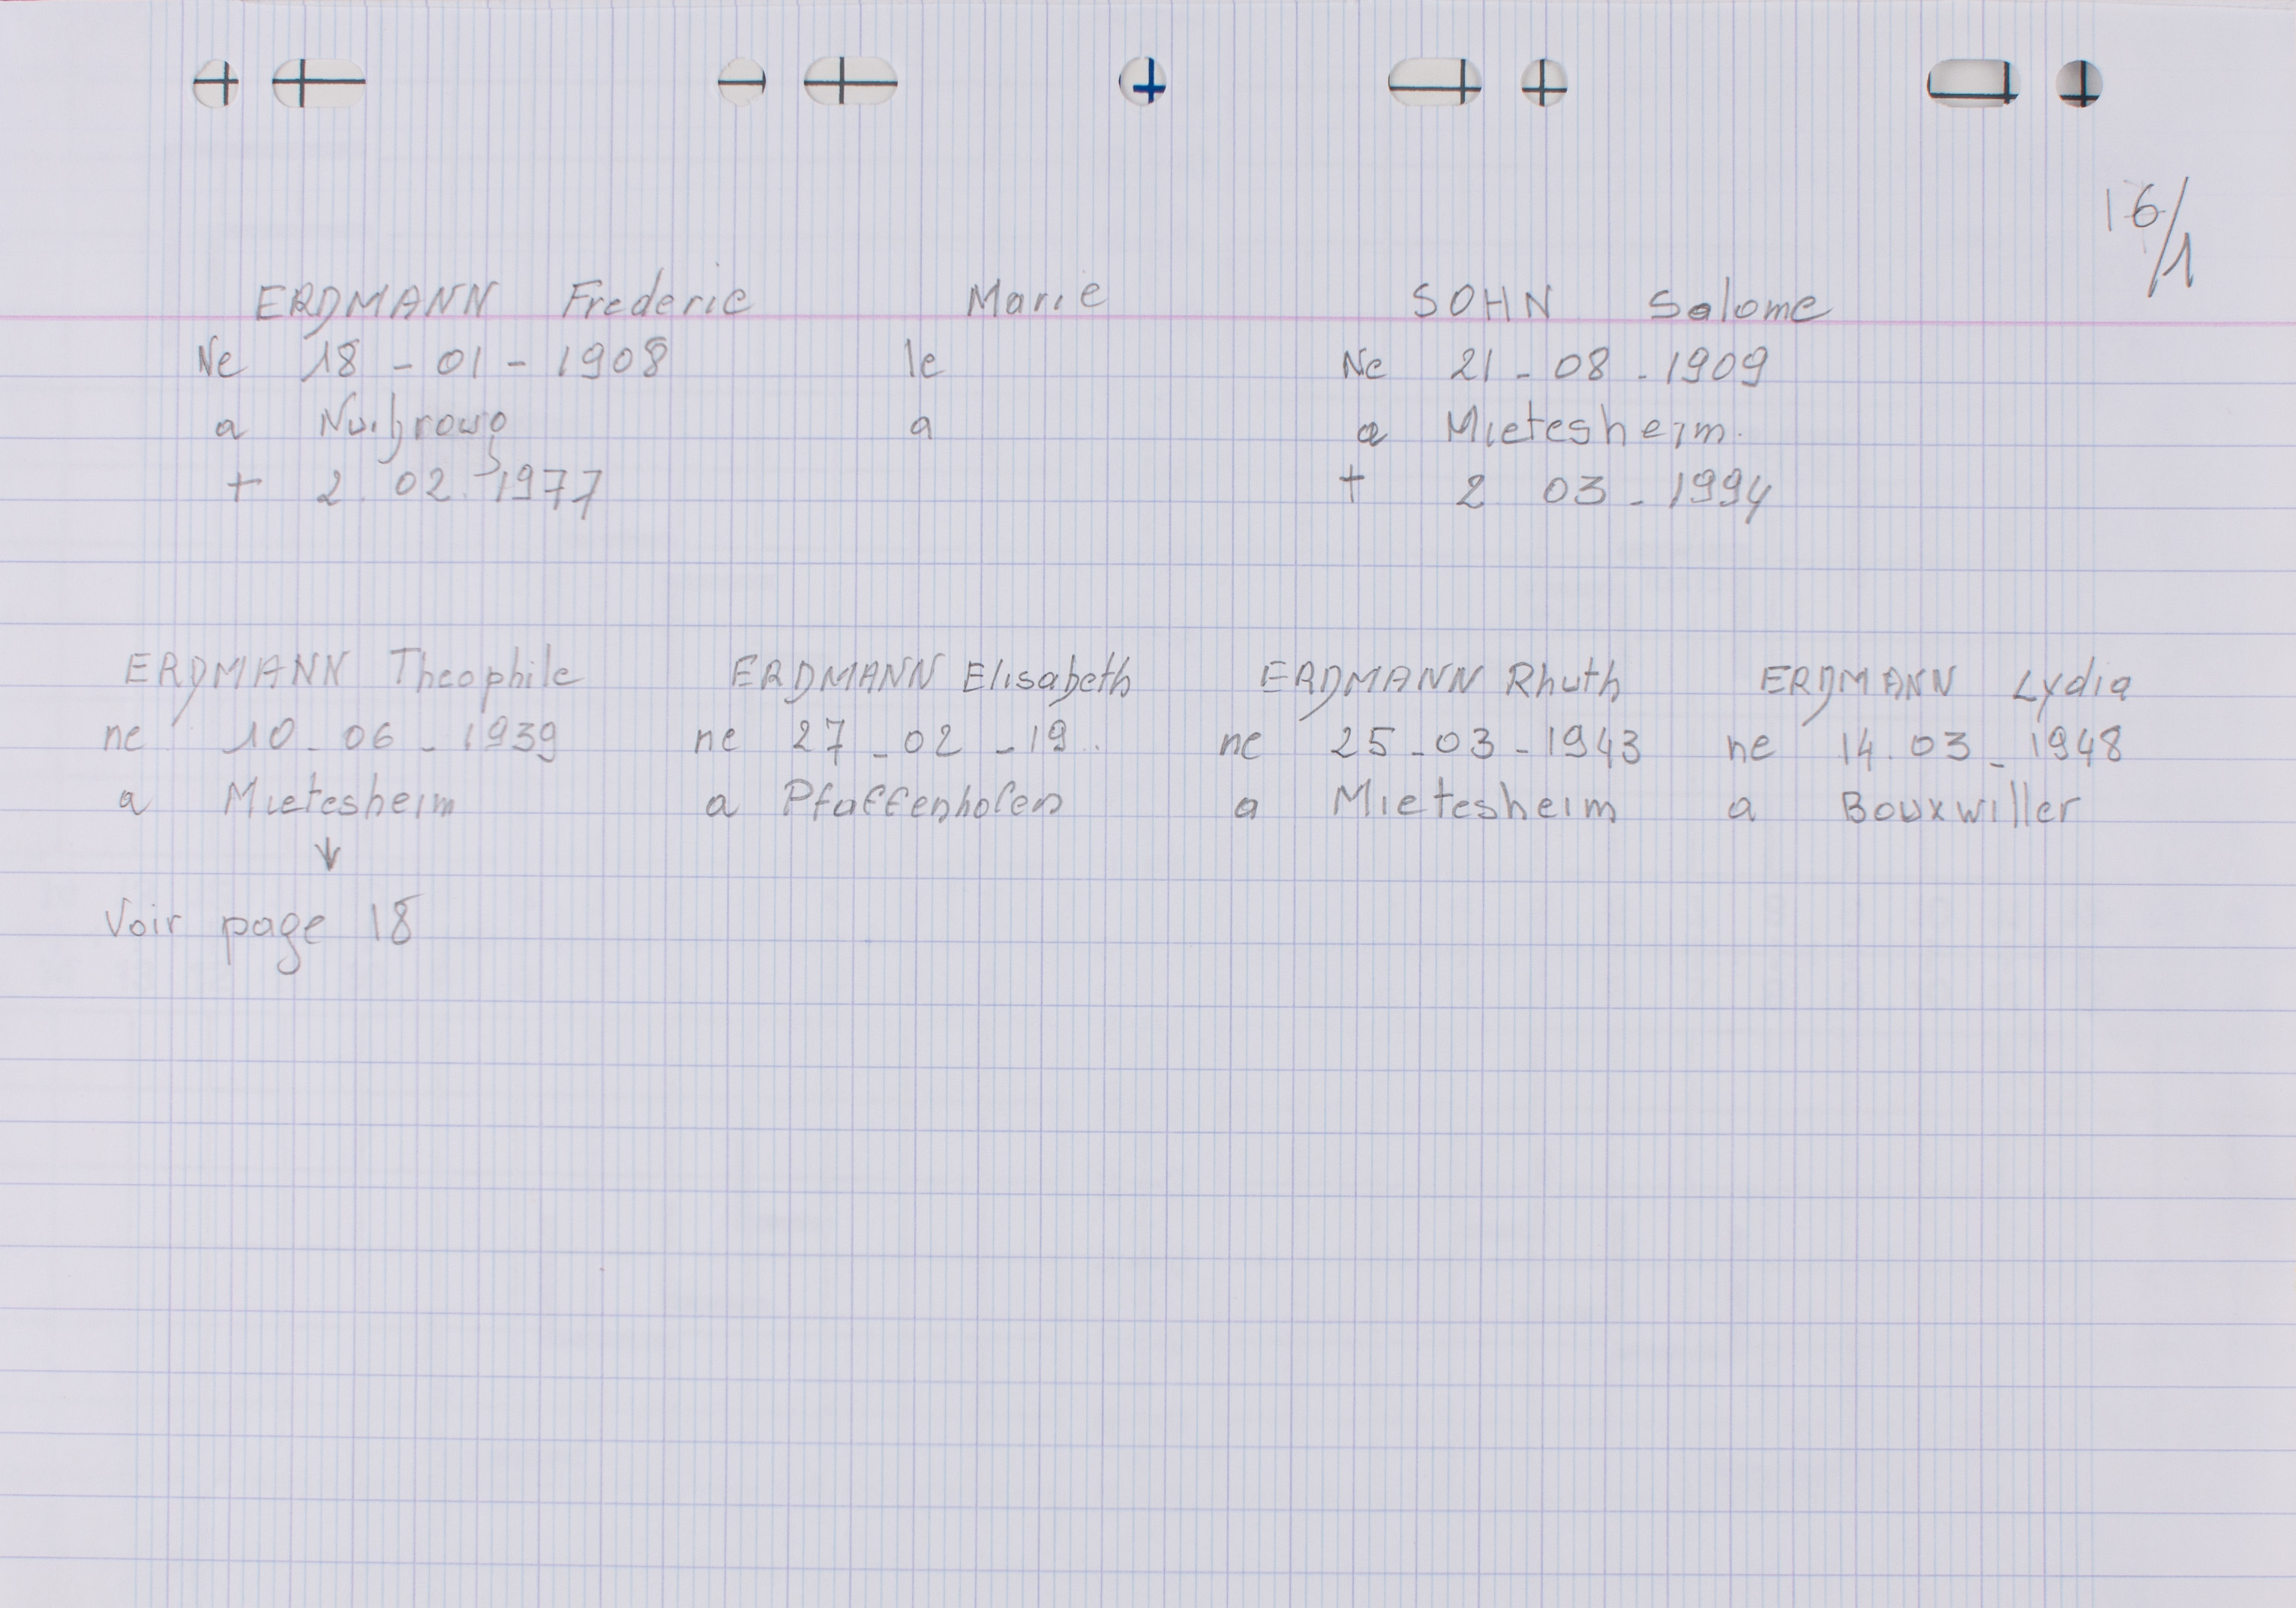 16/1
ERDMANN Frederic Marie SOHN Salome
Ne 18 - 01 - 1908 le Ne 21 - 08 - 1909
a a a Mietesheim.
+ 2. 02. 1977 + 2 03 - 1994
ERDMANN Theophile ERDMANN Elisabeth ERDMANN Rhuth ERDMANN Lydia
ne 10 - 06 - 1939 ne 27 - 02 - 19.. ne 25 - 03 - 1943 ne 14. 03 - 1948
a Mietesheim a Pfaffenhofen a Mietesheim a Bouxwiller
↓
Voir page 18